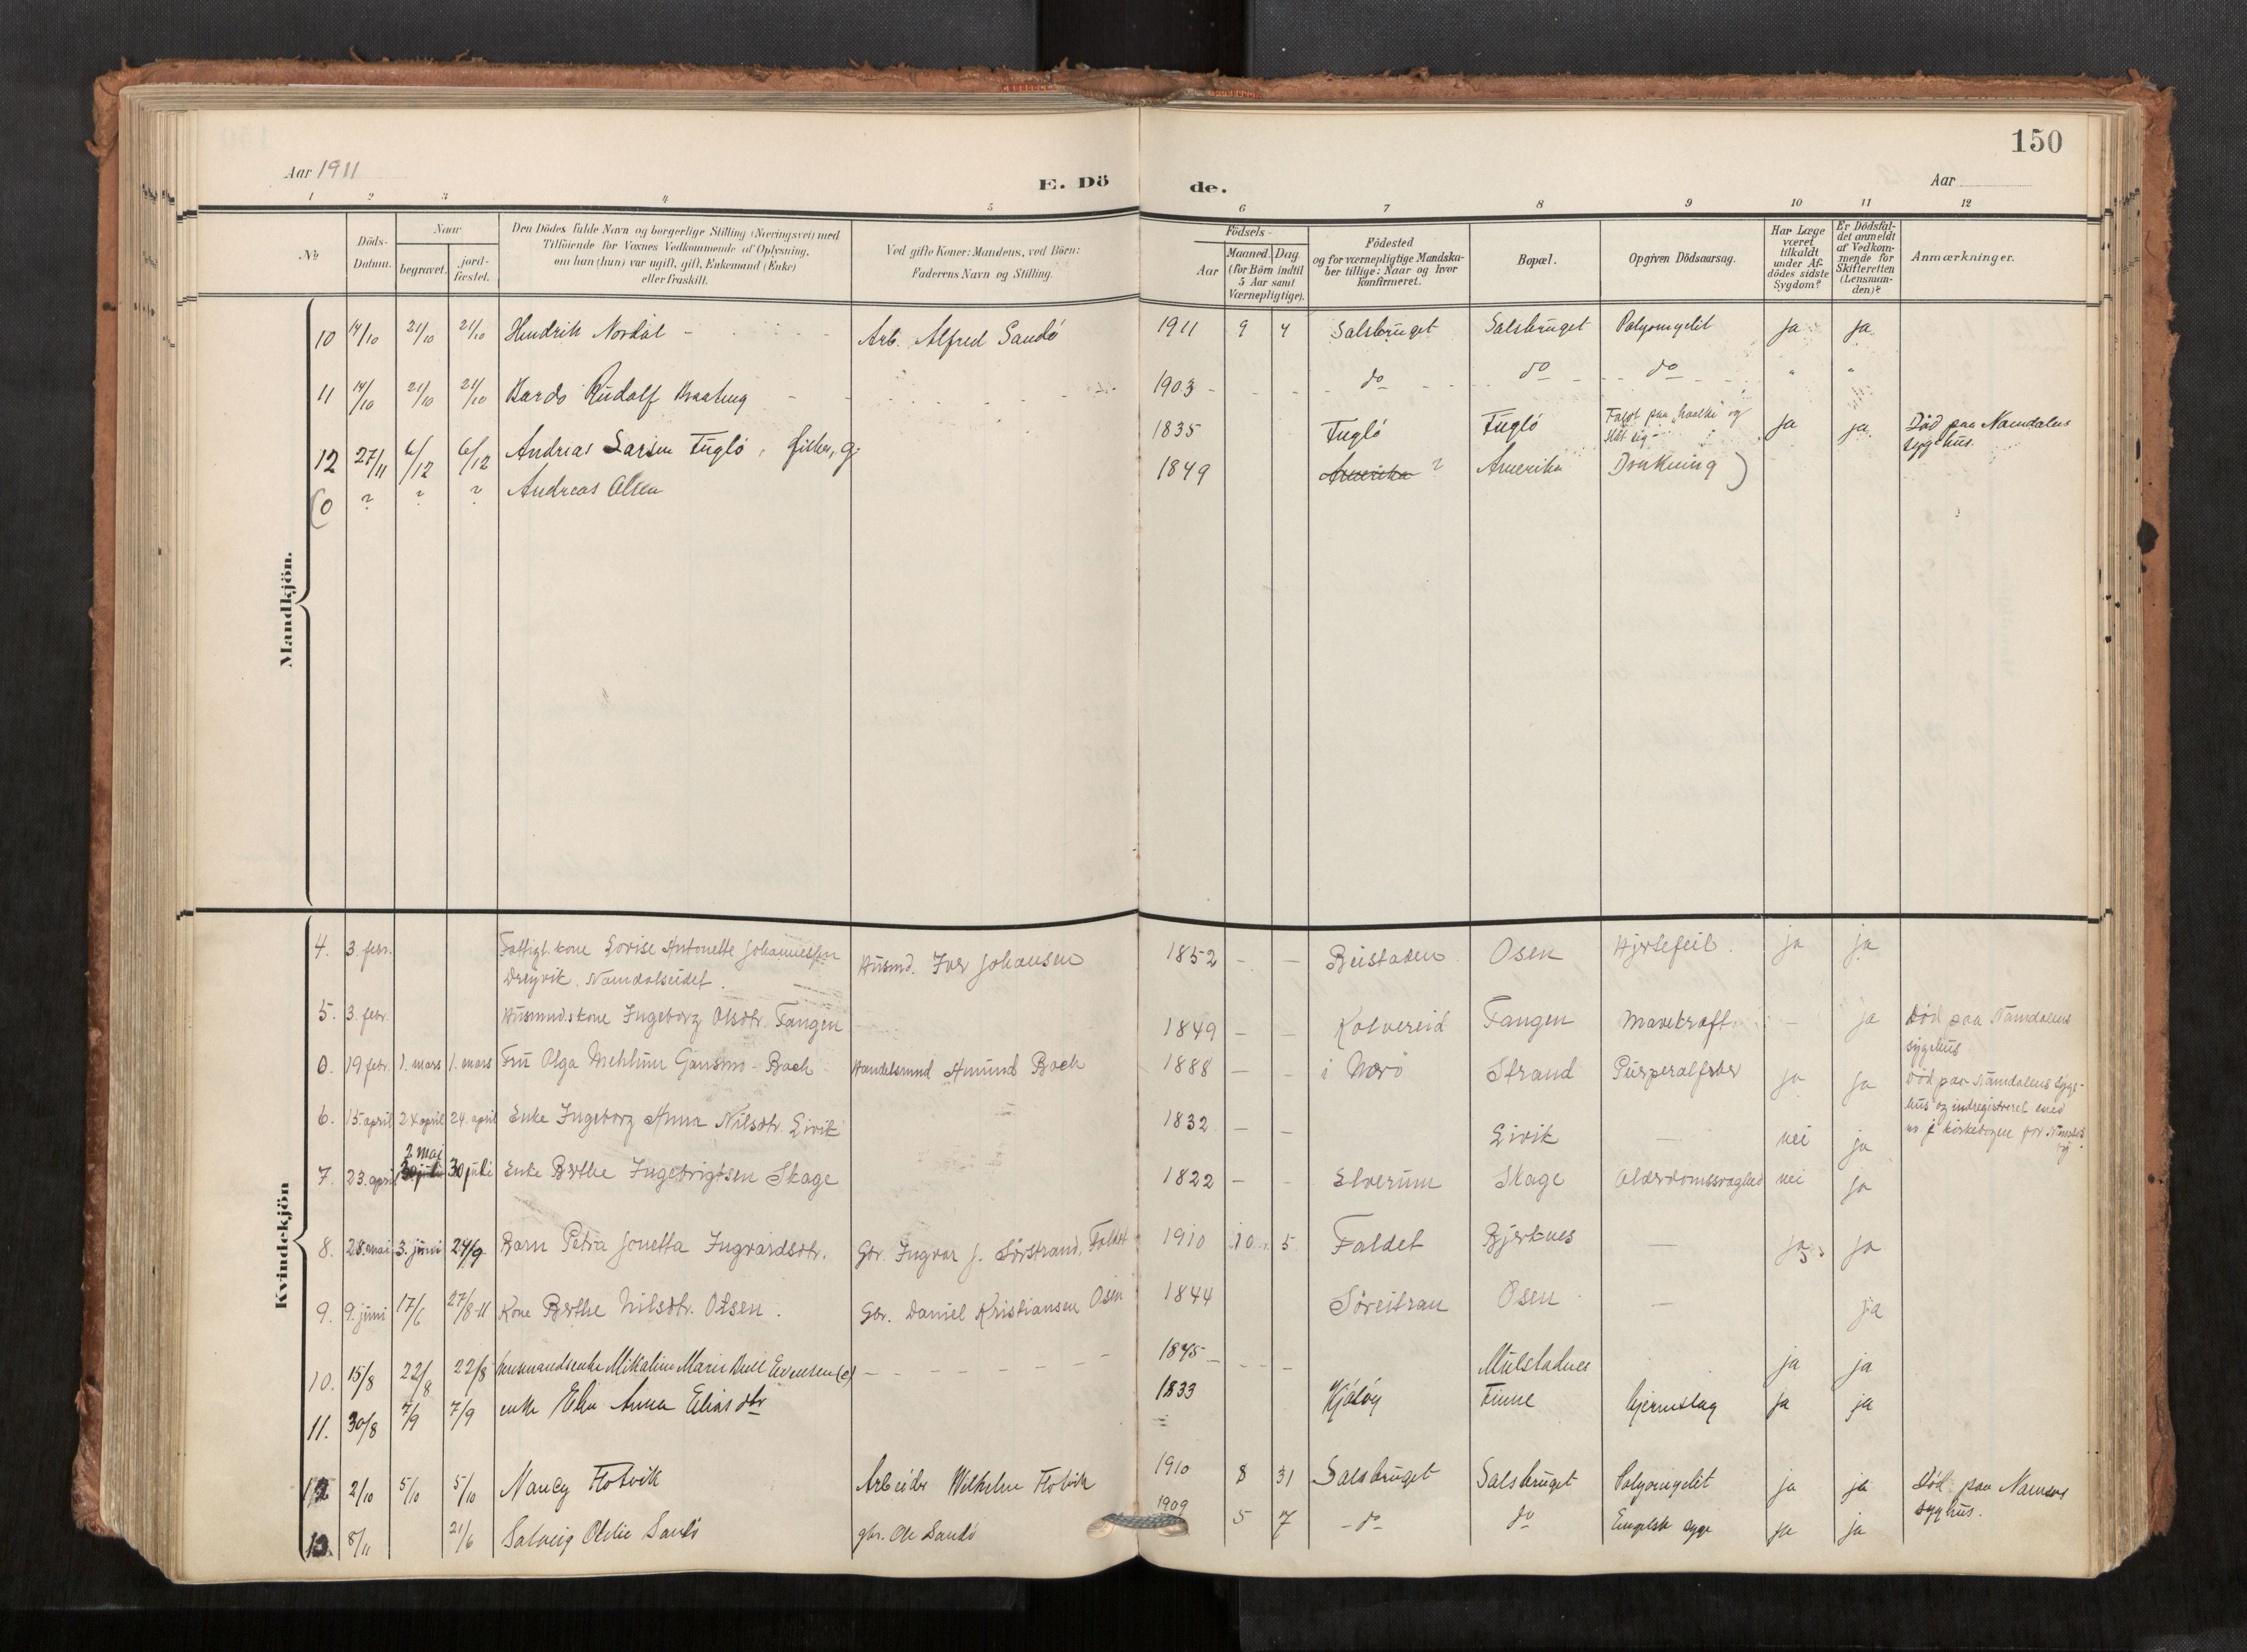 150
Aar 1911
E. Dö
de.
Aar
1 2 3 4 5 6 7 8 9 10 11 12
No
Döds-Datum.
Naar
begravet.
jord-fæstet.
Den Dödes fulde Navn og borgerlige Stilling (Næringsvei) med
Tilföiende for Voxnes Vedkommende af Oplysning,
om han (hun) var ugift, gift, Enkemand (Enke)
eller fraskilt.
Ved gifte Koner: Mandens, ved Börn:
Faderens Navn og Stilling.
Födsels-
Aar
Maaned.
Dag
(for Börn indtil
5 Aar samt
Værnepligtige).
Födested
og for værnepligtige Mandska-
ber tillige: Naar og hvor
konfirmeret.
Bopæl.
Opgiven Dödsaarsag.
Har Læge
været
tilkaldt
under Af-
dödes sidste
Sygdom?
Er Dödsfal-
det anmeldt
af Vedkom-
mende for
Skifteretten
(Lensman-
den)?
Anmærkninger.
Mandkjön.
10 14/10 21/10 21/10 Hendrik Nordal - Arb. Alfred Sandö 1911 9 4 Salsbruget Salsbruget Polyomyelit ja ja
11 14/10 21/10 21/10 Rudolf 1903 - do do do " "
12 27/11 6/12 6/12 Andreas Larsen Fuglö, fisker, g. 1835 Fuglö Fuglö Faldt paa og slåt sig ja ja Död paa Namdalens sygehus.
(0 ? ? ? Andreas Olsen 1849 Amerika ? Amerika Drukning)
Kvindekjön
4. 3. febr. Fattigl. kone Lovise Antonette Johannessen
Namdalseidet. Husmd. Iver Johansen 1852 - - Beistaden Osen Hjertefeil. ja ja
5. 3. febr. Husmandskone Ingeborg Olsdtr. Fangen 1849 - - Kolvereid Fangen Mavekræft - ja Död paa Namdalens sygehus
0. 19 febr. 1. mars 1. mars Fru Olga Mehlum Gansmo - Bach Handelsmnd Amund Bach 1888 - - i Nærö Strand Puerperalfeber ja ja Död paa Namdalens syge-
hus og indregistreret med
no i kirkebogen for Namsos
by.
6. 15. april 24 april 24. april Enke Ingeborg Anna Nilsdtr. Eivik 1832 - - Eivik - nei ja
2 mai
7. 23. april 30 juli 30 juli Enke Berthe Ingebrigtsen Skage 1822 - - Elverum Skage Alderdomssvaghed nei ja
8. 28. mai 3. juni 24/9 Barn Petra Jonetta Ingvardsdtr. Gbr. Ingvar J. Sörstrand, Faldet 1910 10 5 Faldet Bjerknes - ja ja
9. 9. juni 17/6 27/8-11 Kone Berthe Nilsdtr. Osen. Gbr. Daniel Kristiansen Osen 1844 Osen - ja
10. 15/8 22/8 22/8 husmandsenke Mikaline Marie (e) - 1845 - - - ja ja
11. 30/8 7/9 7/9 enke Elen Anna Eliasdtr 1833 Finne hjerneslag ja ja
12 2/10 5/10 5/10 Nancy Flotvik Arbeider Wilhelm Flotvik 1910 8 31 Salsbruget Salsbruget Polyomyelit ja ja Död paa Namsos
sygehus.
13. 8/11 21/6 Solveig Otilie Sandö gbr. Ole Sandö 1909 5 7 - do do Engelsk syge ja ja